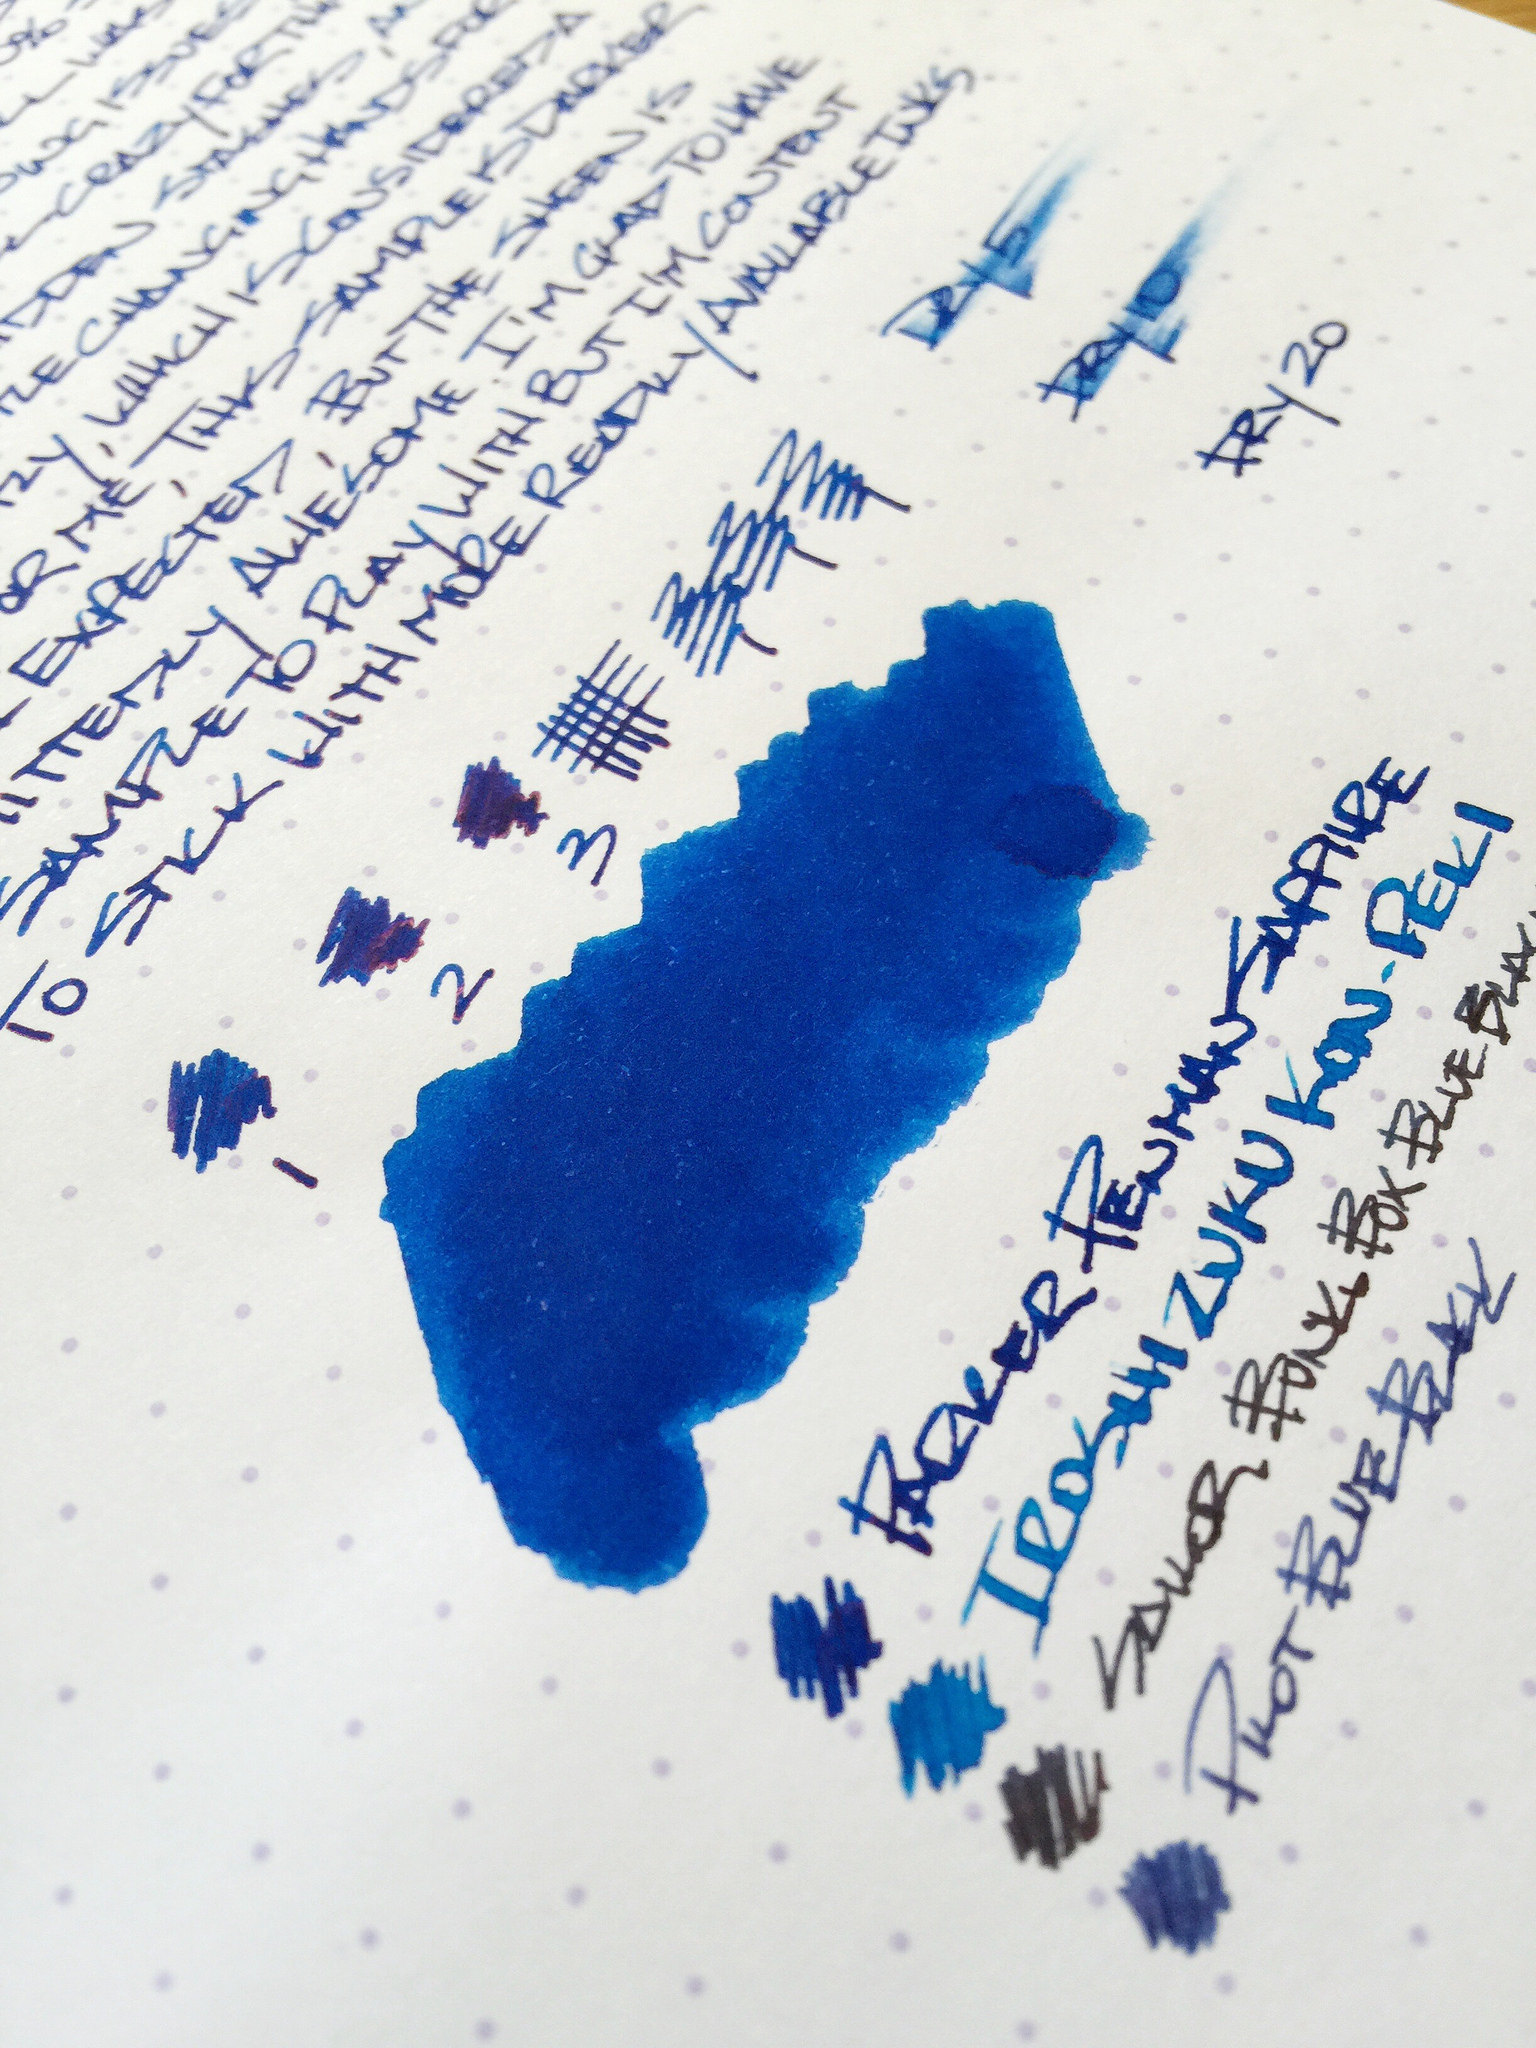 0%
WAS
ISSUES
CRAZY FOR TH
STASHES, AN
CHANGING HANDS FOR
ZY, WHICH IS CONSIDERED A
OR ME, THIS SAMPLE IS DARKER
EXPECTED, BUT THE SHEEN IS
UTTERLY AWESOME. I'M GLAD TO HAVE
SAMPLE TO PLAY WITH BUT I'M CONTENT
TO STICK WITH MORE READILY AVAILABLE INKS
DRY 5
DRY 10
DRY 20
3
2
1
PARKER PENMAN SAPPHIRE
IROSHIZUKU KON-PEKI
SAILOR BUNG BOX BLUE BLA
PILOT BLUE BLACK